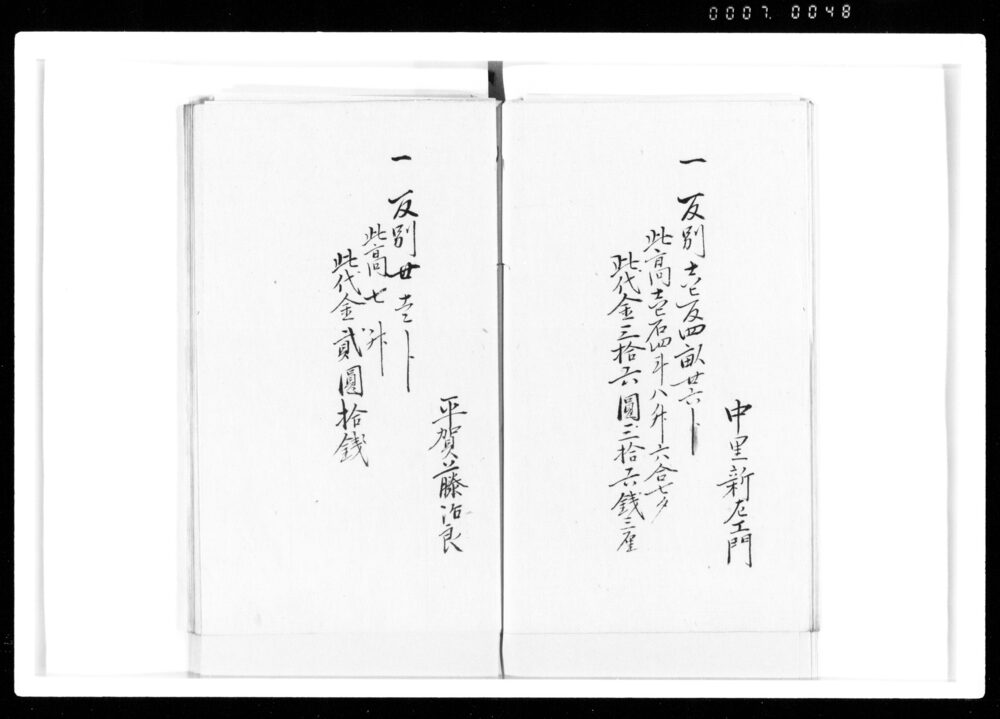 0007. 0048
中里新左エ門
一 反別壱反四畝廿六卜
此高壱石四斗八升六合七夕
此代金三拾六圓三拾六銭二厘
平賀藤治良
一 反別廿壱卜
此高七升
此代金貳圓拾銭